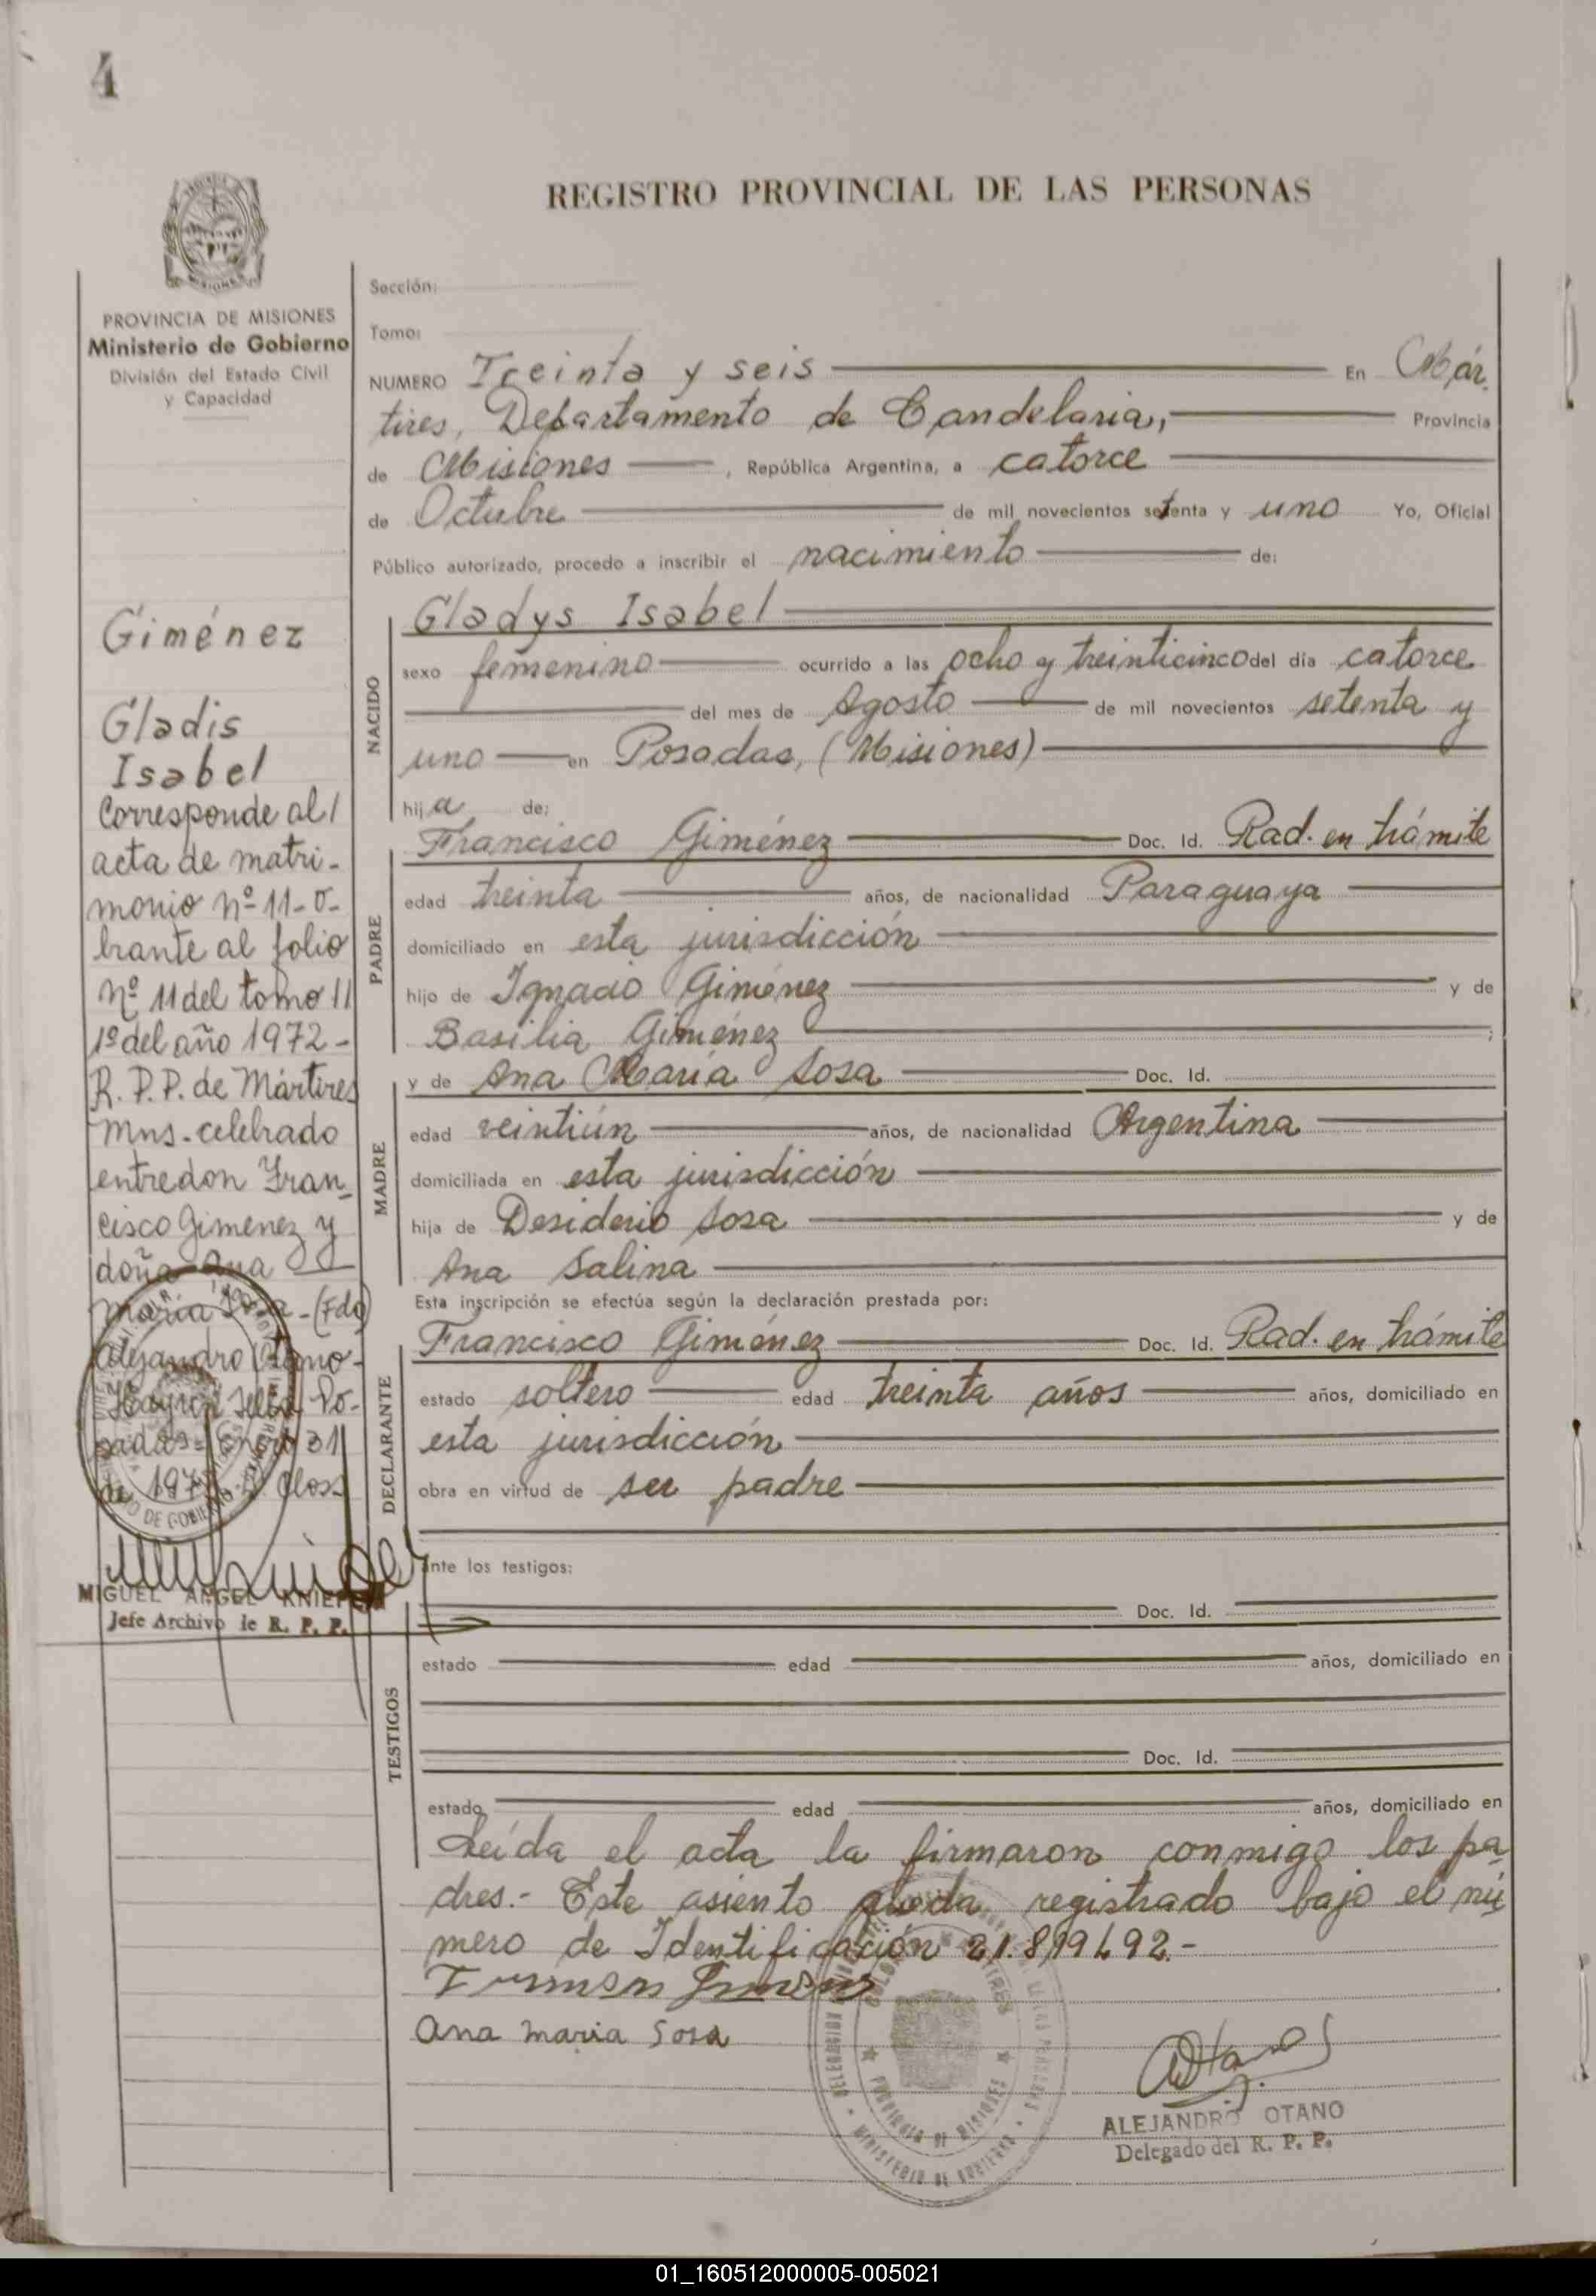 4
REGISTRO PROVINCIAL DE LAS PERSONAS
PROVINCIA DE MISIONES
Ministerio de Gobierno
División del Estado Civil
y Capacidad
Giménez
Gladis
Isabel
Corresponde al
acta de matri-
monio nº 11-o-
brante al folio
nº 11 del tomo
1º del año 1972-
R. P. P. de Mártires
Mns. celebrado
entre don Fran-
cisco Gimenez y
doña Ana
Maria - (Fdo)
Alejandro
Po-
31
MIGUEL ANGEL
Jefe Archivo de R. P. P.
Sección:
Tomo:
NUMERO Treinta y seis En Már-
tires, Departamento de Candelaria, Provincia
de Misiones, República Argentina, a catorce
de Octubre de mil novecientos setenta y uno Yo, Oficial
Público autorizado, procedo a inscribir el nacimiento de:
NACIDO
Gladys Isabel
sexo femenino ocurrido a las ocho y treinticinco del día catorce
del mes de Agosto de mil novecientos setenta y
uno en Posadas, (Misiones)
hija de:
PADRE
Francisco Giménez Doc. Id. Rad. en trámite
edad treinta años, de nacionalidad Paraguaya
domiciliado en esta jurisdicción
hijo de Ignacio Giménez y de
Basilia Giménez ;
MADRE
y de Ana María Sosa Doc. Id.
edad veintiún años, de nacionalidad Argentina
domiciliada en esta jurisdicción
hija de Desiderio Sosa y de
Ana Salina
Esta inscripción se efectúa según la declaración prestada por:
DECLARANTE
Francisco Giménez Doc. Id. Rad. en trámite
estado soltero edad treinta años años, domiciliado en
esta jurisdicción
obra en virtud de ser padre
ante los testigos:
TESTIGOS
Doc. Id.
estado edad años, domiciliado en
Doc. Id.
estado edad años, domiciliado en
Leída el acta la firmaron conmigo los pa-
dres.- Este asiento queda registrado bajo el nú-
mero de Identificación 21.819.492.-
Ana maria Sosa
ALEJANDRO OTANO
Delegado del R. P. P.
01_160512000005-005021